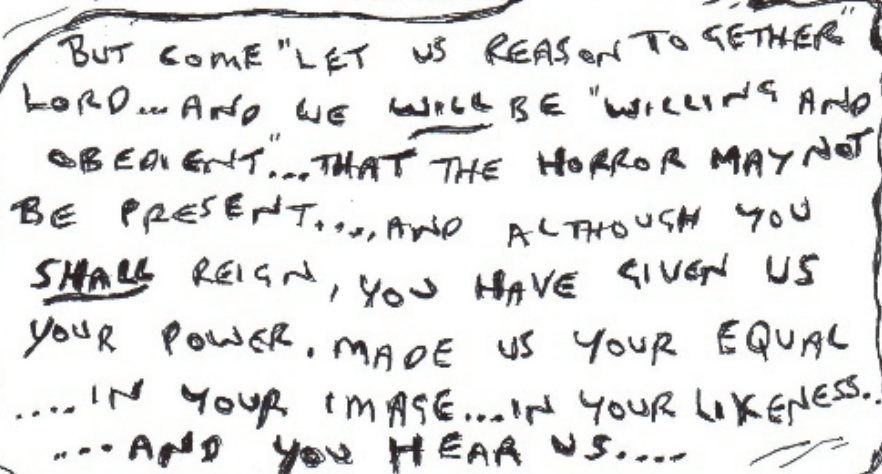 BUT COME "LET US REASON TOGETHER"
LORD... AND WE WILL BE "WILLING AND
OBEDIENT"... THAT THE HORROR MAY NOT
BE PRESENT...., AND ALTHOUGH YOU
SHALL REIGN, YOU HAVE GIVEN US
YOUR POWER. MADE US YOUR EQUAL
.... IN YOUR IMAGE.... IN YOUR LIKENESS..
.... AND YOU HEAR US....